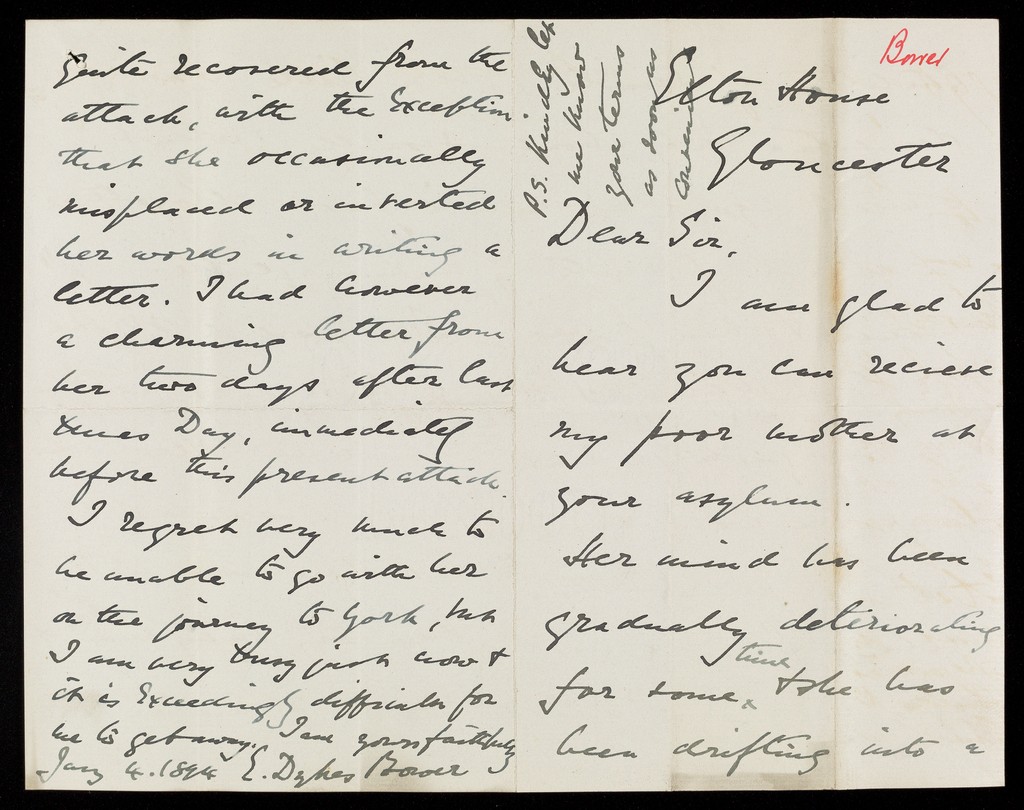 Bower
Elton House
Gloucester
Dear Sir,
I am glad to
hear you can recieve
my poor mother at
your asylum.
Her mind has been
gradually deteriorating
for some time & she has
been drifting into a
quite recovered from the
attack, with the exception
that she occasionally
misplaced or inverted
her words in writing a
letter. I had however
a charming letter from
her two days after last
Xmas Day, immediately
before this present attack.
I regret very much to
be unable to go with her
on the journey to York, but
I am very busy just now &
it is exceedingly difficult for
me to get away. I am yours faithfully
Jany 4. 1894 E. Dykes Bower
P.S. Kindly let
me know
your terms
as soon as
convenient